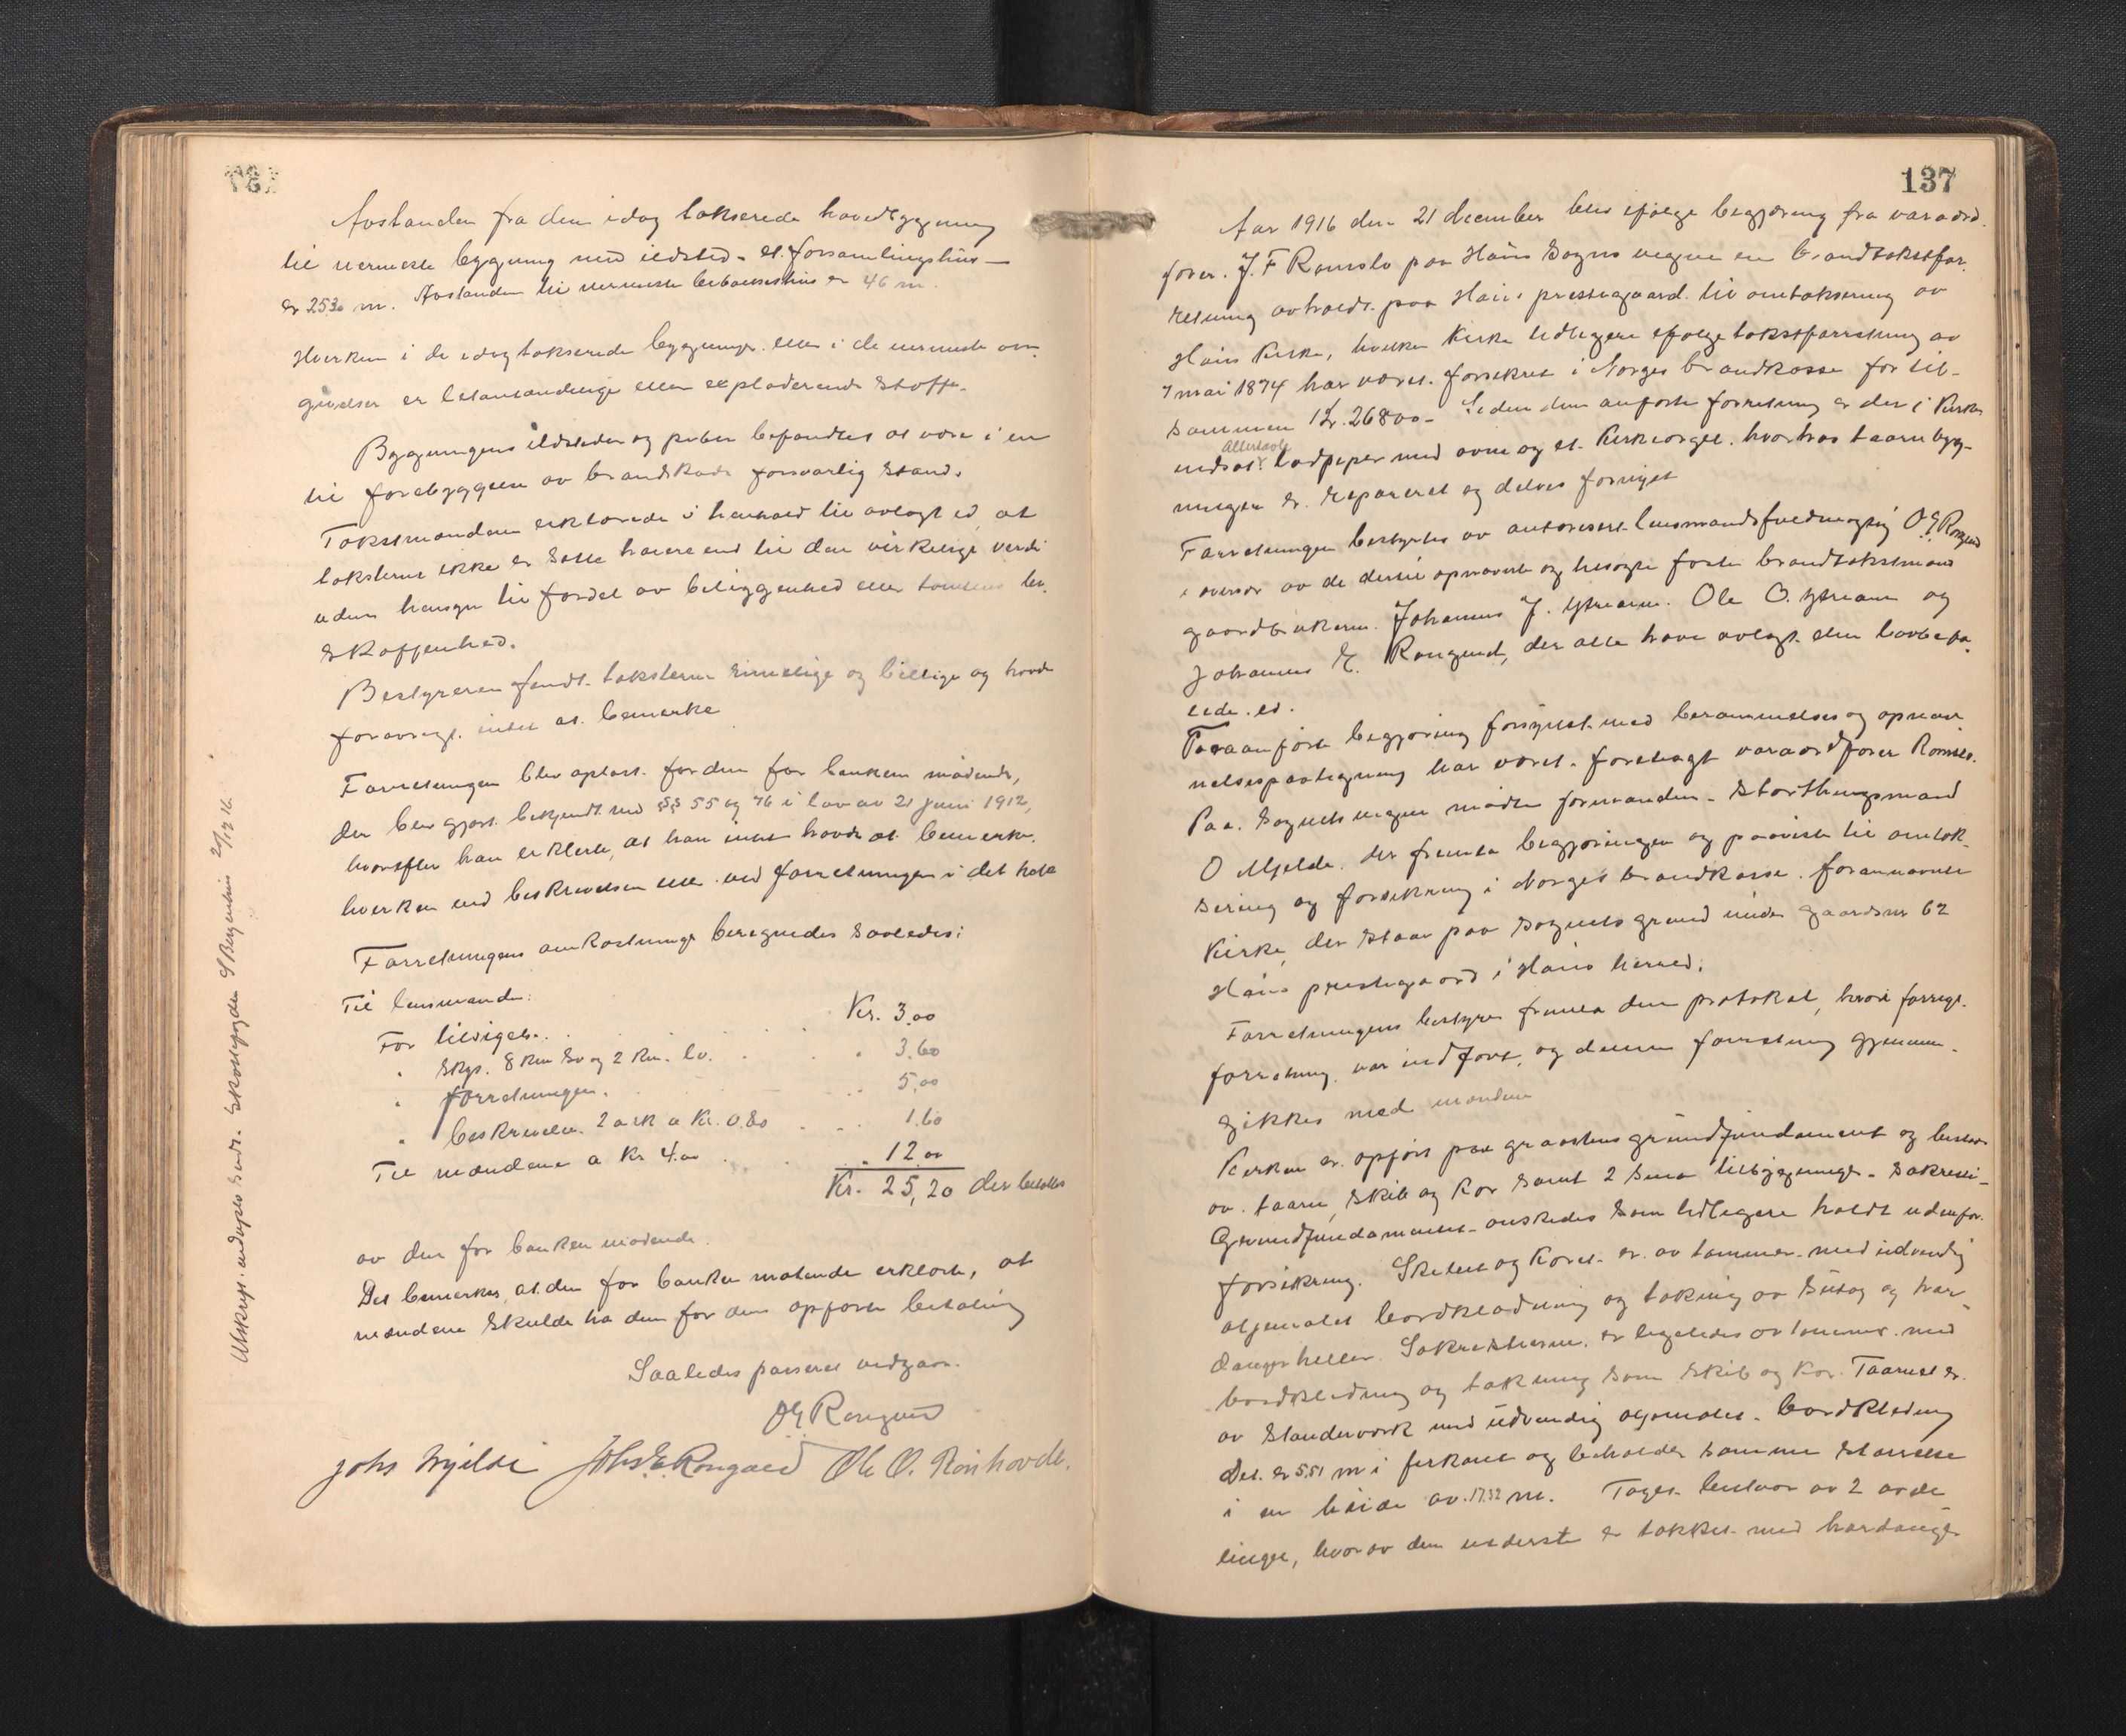 Avstanden fra den idag takserede hovedbygning
til nermeste bygning med ildsted - et forsamlingshus -
er 25.30 m. Avstanden til nermeste beboelseshus er 46 m.
Hverken i de idag takserede bygninger eller i de nermeste om-
givelser er letantændelige eller exploderende stoffe.
Bygningens ildsteder og piber befandtes at være i en
til forebyggelse av brandskade forsvarlig stand.
Takstmændene erklærede i henhold til avlagt ed, at
taksterne ikke er satte høiere end til den virkelige verdi
uden hensyn til fordel av beliggenhed eller tomtens be-
skaffenhed.
Bestyreren fandt taksterne rimelige og billige og havde
forøvrigt intet at bemerke
Forretningen blev oplæst for den for banken mødende,
der blev gjort bekjendt med §§ 55 og 76 i lov av 21 juni 1912,
hvorefter han erklærte, at han intet havde at bemerke
hverken ved beskrivelsen eller ved forretningen i det hele
Forretningens omkostninger beregnedes saaledes:
Til lensmanden:
For tilsigelse . . . Kr. 3.00
" Skys. 8 km sø og 2 km. lv. . . . 3.60
" forretningen . . . 5.00
" beskrivelse. 2 ark a Kr. 0.80 . . . 1.60
Til mændene a Kr 4.00 . . . 12.00
Kr. 25,20 der betales
av den for banken mødende.
Det bemerkes, at den for banken møtende erklærte, at
mændene skulde ha den for dem opførte betaling
Saaledes passeret vedgaar.
OE Rongved
Johs Mjelde Johs. E. Rongved Ole O. Rönhovde.
Utskrift indgaaet Sødr. skrivergaarden S Bergenhus 27/12 16.
137
Aar 1916 den 21 december blev ifølge begjæring fra varaord-
fører. J. F Romslo paa Haus Sogns vegne en brandtakstfor-
retning avholdt paa Haus prestegaard til omtaksering av
Haus Kirke, hvilken kirke tidligere ifølge takstforretning av
7 mai 1874 har været forsikret i Norges brandkasse for til-
sammen Kr. 26800 - Siden den anførte forretning er der i kirken
Altertavle
indsat lodpiper med ovne og et kirkeorgel. hvorhos taarnbyg-
ningen er repareret og delvis fornyet
Forretningen bestyrtes av autoriseret lensmandsfuldmægtig O E Rongved
i overvær av de dertil opnævnte og besørgte faste brandtakstmænd
gaardbrukerne Johannes J. Ytrearne. Ole O. Ytrearne og
Johannes E. Rongved, der alle have avlagt den lovbefa-
lede ed.
Foraanførte begjæring forsynet med berammelses og opnæv-
nelsespaategning har været forelagt varaordfører Romslo.
Paa Sognets vegne mødte formanden - Storthingsmand
O Mjelde. der fremla begjæringen og paaviste til omtak-
sering og forsikring i Norges brandkasse. forannævnte
Kirke, der staar paa sognets grund under gaardsnr 62
Haus prestegaard i Haus herred.
Forretningens bestyrer fremla den protokol, hvori forrige
forretning var indført, og denne forretning gjennem-
gikkes med mændene
Kirken er opført paa graastens grundfundament og bestaar
av taarn, skib og kor samt 2 smaa tilbygninger - sakresti -
Grundfundamentet ønskedes som tidligere holdt udenfor
forsikring. Skibet og koret er av tømmer med udvendig
oljemalet bordklædning og tækning av sutag og har-
dangerheller. Sakrestierne er ligeledes av tømmer med
bordklædning og tækning som skib og kor. Taarnet er
av Standerværk med udvendig oljemalet bordklædning
Det er 5.51 m i firkant og beholder samme størrelse
i en høide av 17.32 m. Taget bestaar av 2 avde-
linger, hvorav den nederste er tækket med hardanger-